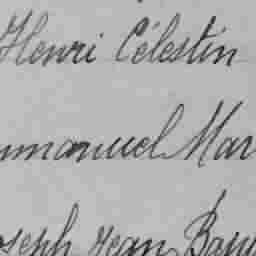 Henri Célestin
mmanuel Mar
oseph Jean Bap